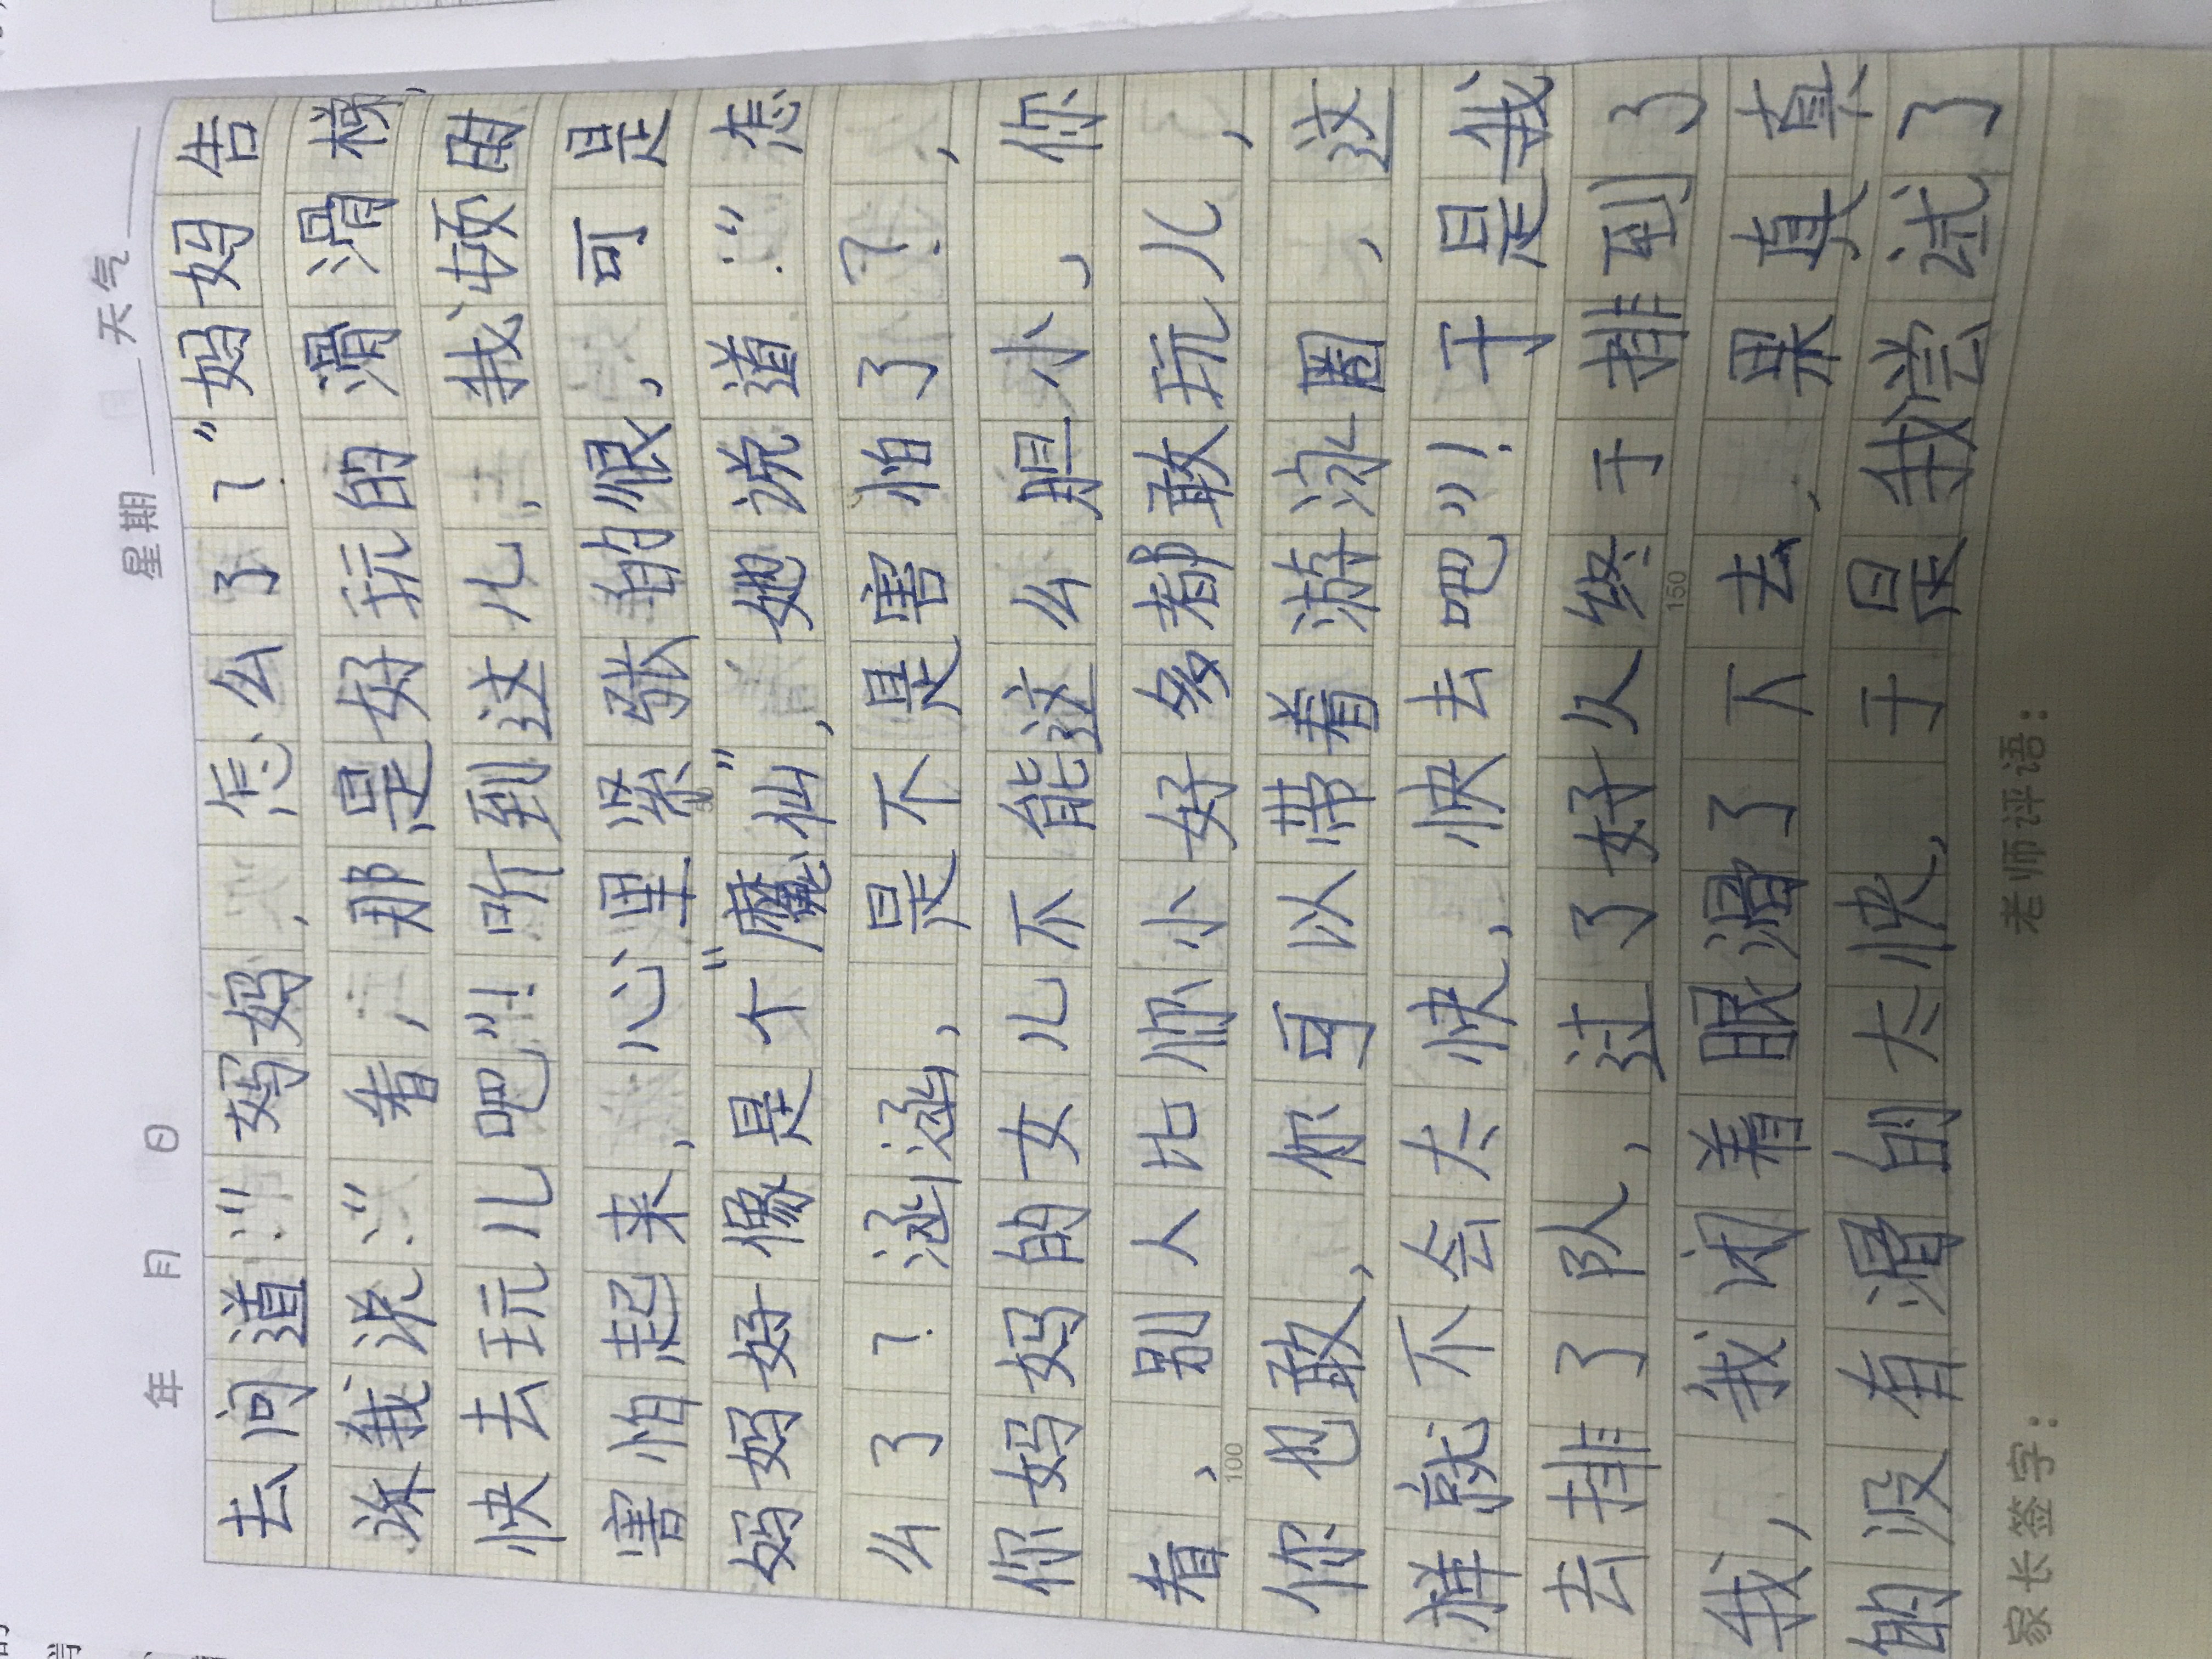 年 月 日 星期 天气
去问道：“妈妈，怎么了？”妈妈告
诉我说：“看，那是好玩的滑滑梯，
快去玩儿吧”！听到这儿，我顿时
害怕起来，心里紧张的很，可是
妈妈好像是个“魔仙”，她说道：“怎
么了？涵涵，是不是害怕了？，
你妈妈的女儿不能这么胆小，你
看，别人比你小好多都敢玩儿，
100
你也敢，你可以带着游泳圈，这
样就不会太快，快去吧”！于是我
去排了队，过了好久终于排到了
150
我，我闭着眼滑了下去，果真真
的没有滑的太快，于是我尝试了
家长签字： 老师评语：